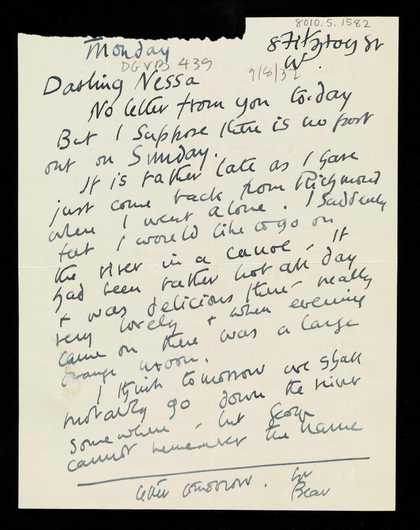 8010.5.1582
Monday
8 Fitzroy St
W.
DGVB 439
9/8/37
Darling Nessa
No letter from you to-day
But I suppose there is no post
out on Sunday.
It is rather late as I have
just come back from Richmond
where I went alone. I suddenly
felt I would like to go on
the river in a canoe - It
had been rather hot all day
& was delicious there - really
very lovely & when evening
came on there was a large
orange moon.
I think tomorrow we shall
probably go down the river
somewhere, but
cannot remember the name
letter tomorrow.
Bear